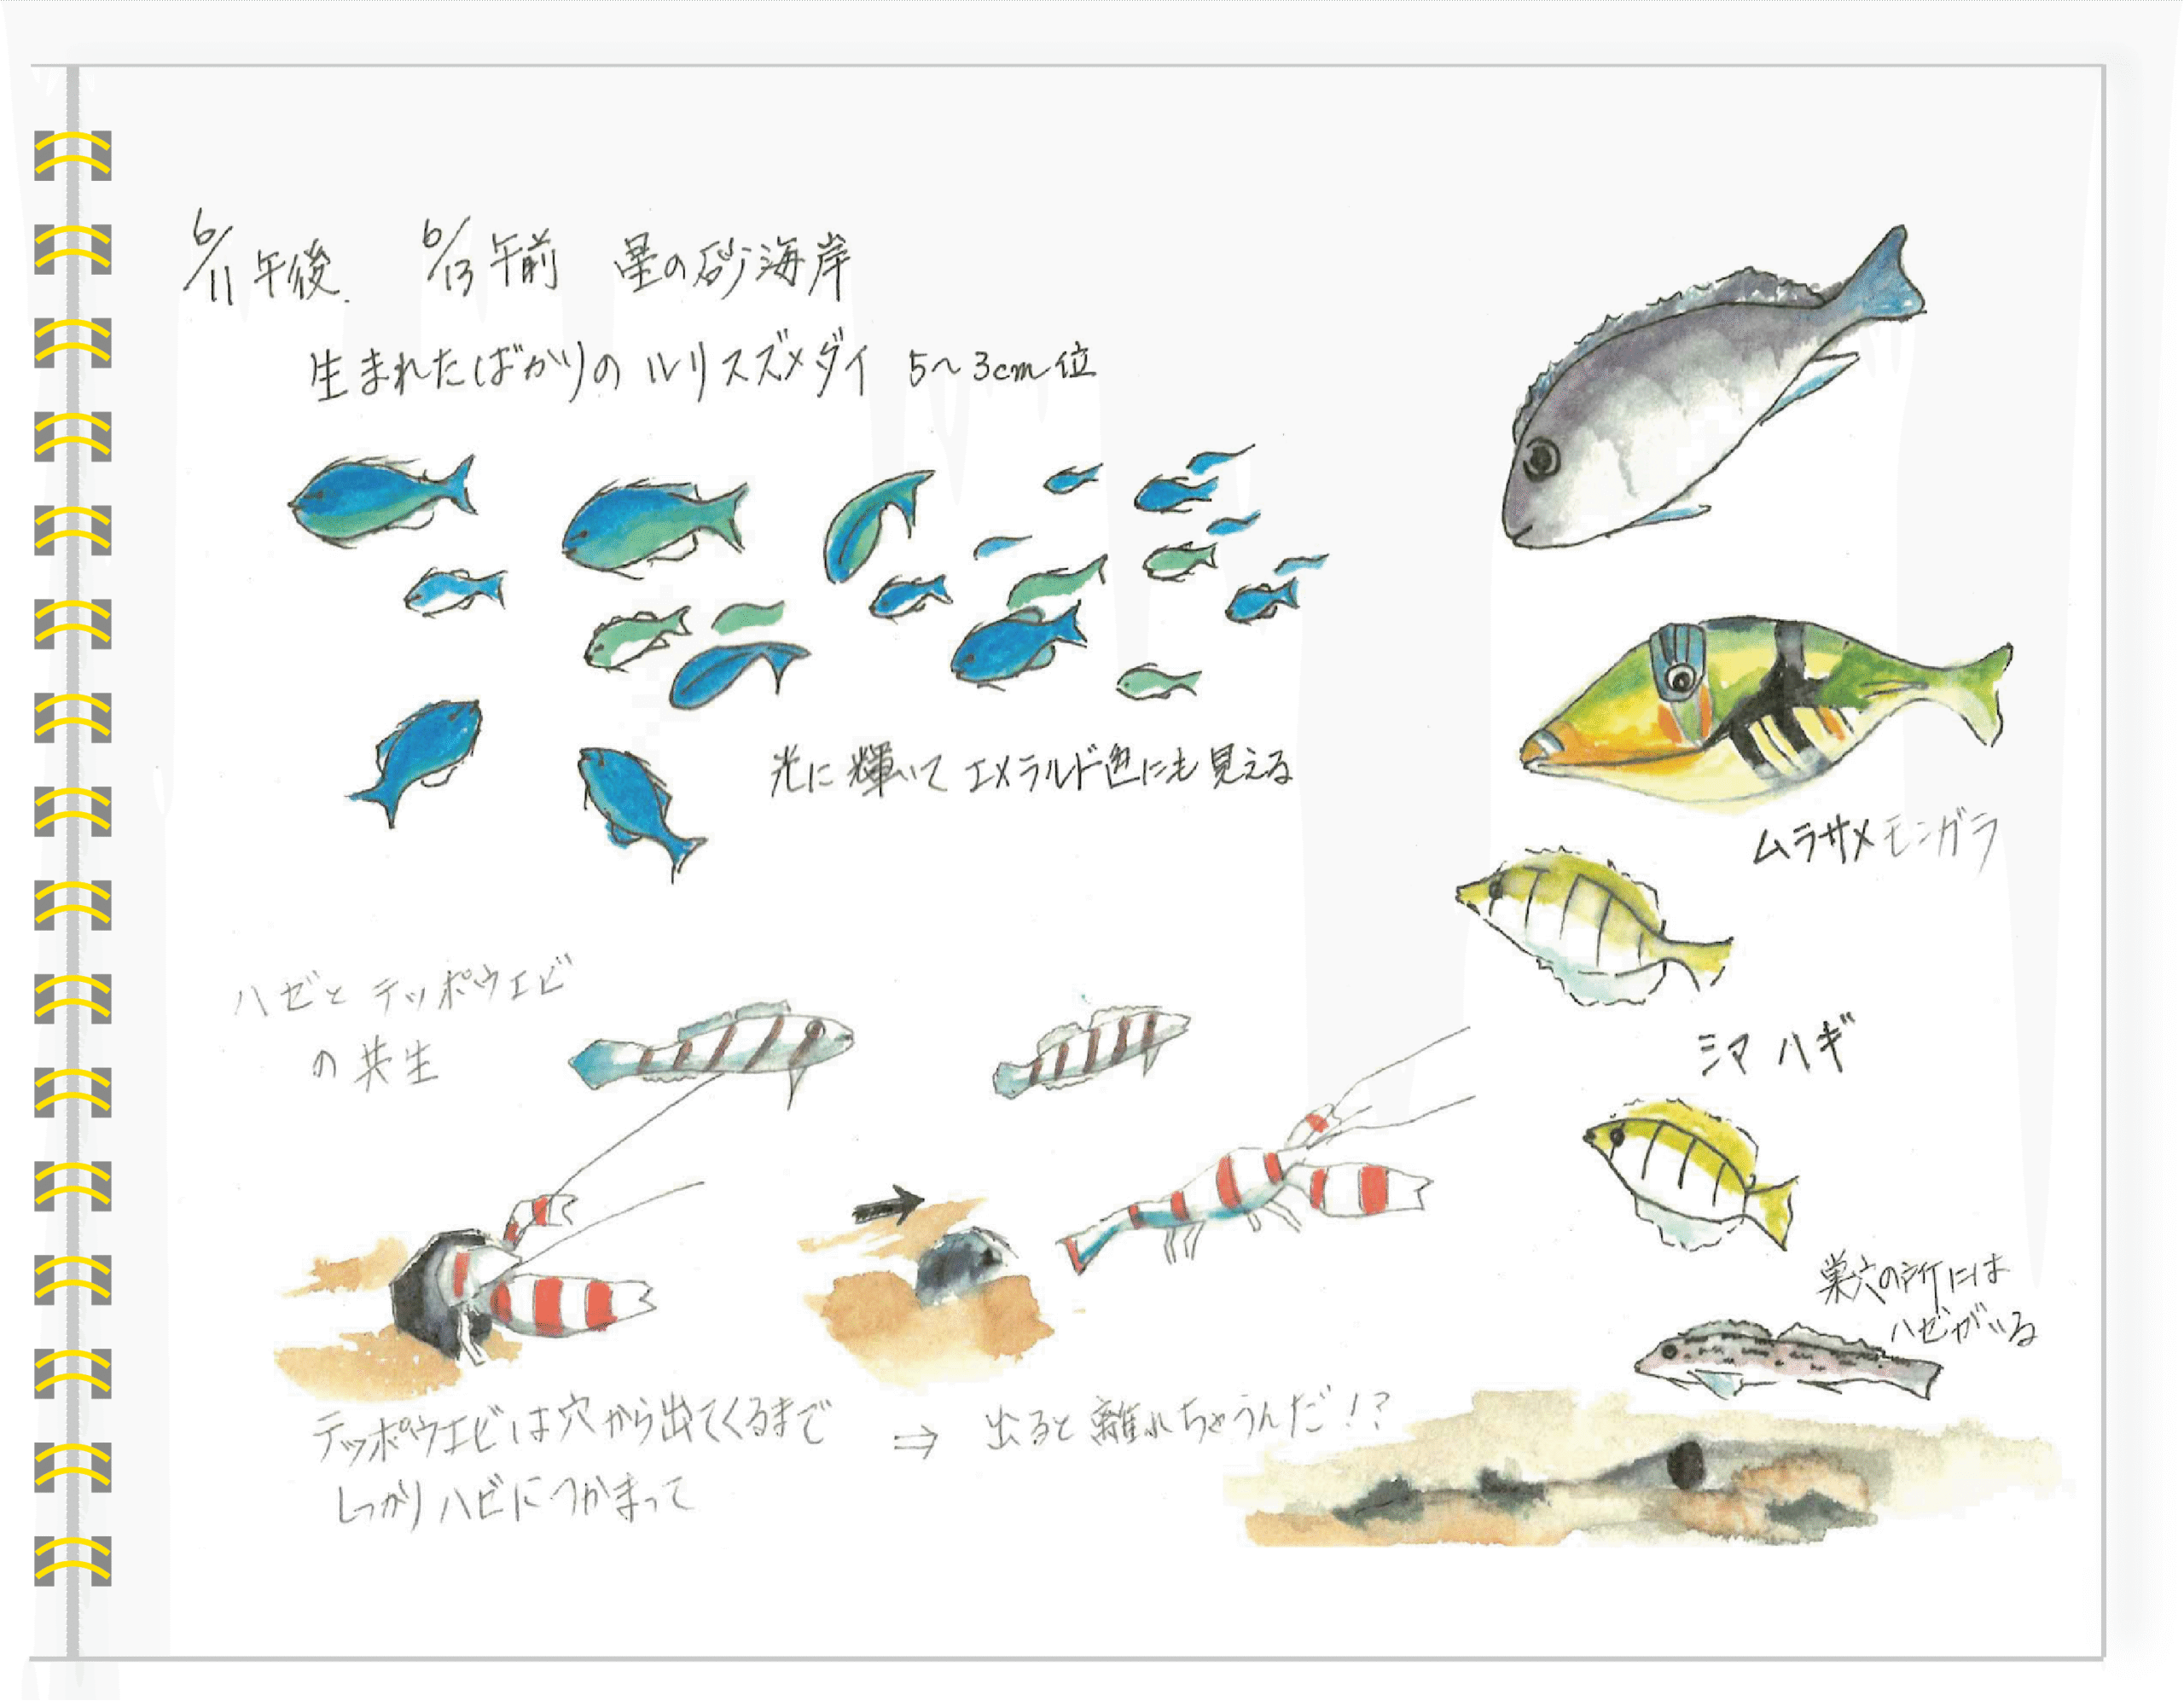 6/11 午後. 6/13 午前 星の砂海岸
生まれたばかりの ルリスズメダイ 5～3cm位
光に輝いて エメラルド色にも見える
ムラサメモンガラ
シマハギ
ハゼと テッポウエビ
の共生
巣穴の所には
ハゼがいる
テッポウエビは穴から出てくるまで
しっかりハゼにつかまって
⇒ 出ると離れちゃうんだ!?